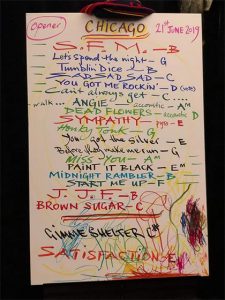 Opener
CHICAGO
21st JUNE 2019
S.F.M. - B
Lets spend the night - G
Tumblin Dice - B
SAD SAD SAD - C
YOU GOT ME ROCKIN' - D
Can't always get - C
walk... ANGIE acoustic - Am
DEAD FLOWERS - acoustic D
SYMPATHY - pyro - E
Honky Tonk - G
You got the Silver - E
Before they make me run - G
MISS - YOU - Am
PAINT IT BLACK - Em
MIDNIGHT RAMBLER - B
START ME UP - F
J. J. F. - B
BROWN SUGAR - C
GIMME SHELTER C#
SATISFACTION - E